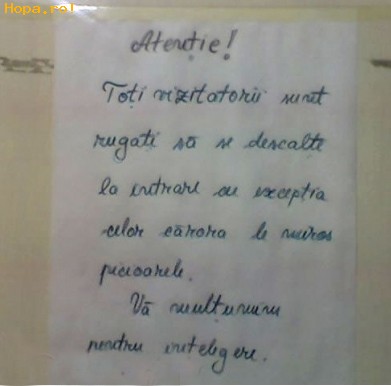 Hopa.ro!
Atenție!
Toți vizitatorii sunt
rugați să se descalțe
la intrare cu excepția
celor cărora le miros
picioarele.
Vă mulțumim
pentru înțelegere.